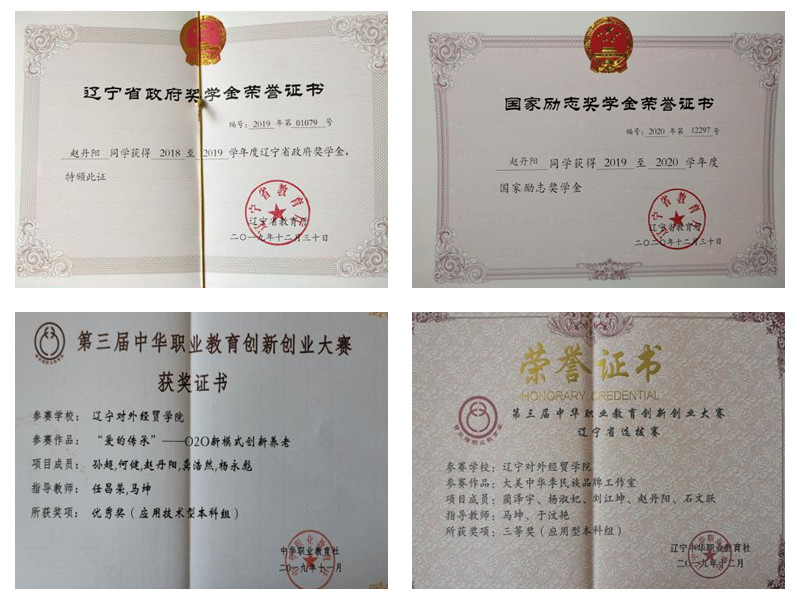 辽宁省政府奖学金荣誉证书
编号：2019 年第 01079 号
赵丹阳 同学获得 2018 至 2019 学年度辽宁省政府奖学金，
特颁此证
辽宁省教育厅
二〇一九年十二月三十日
国家励志奖学金荣誉证书
编号：2020 年 第 12297 号
赵丹阳 同学获得 2019 至 2020 学年度
国家励志奖学金
辽宁省教育厅
二〇二〇年十二月三十日
第三届中华职业教育创新创业大赛
获奖证书
参赛学校：辽宁对外经贸学院
参赛作品：“爱的传承”——O2O新模式创新养老
项目成员：孙超,何健,赵丹阳,龚浩然,杨永彪
指导教师：任昌荣,马坤
所获奖项：优秀奖（应用技术型本科组）
中华职业教育社
二〇一九年十一月
荣誉证书
HONORARY CREDENTIAL
第三届中华职业教育创新创业大赛
辽宁省选拔赛
参赛学校：辽宁对外经贸学院
参赛作品：大美中华季民族品牌工作室
项目成员：蔺泽宇、杨淑妃、刘江坤、赵丹阳、石文跃
指导教师：马坤、于汶艳
所获奖项：三等奖（应用型本科组）
辽宁中华职业教育社
二〇一九年十二月